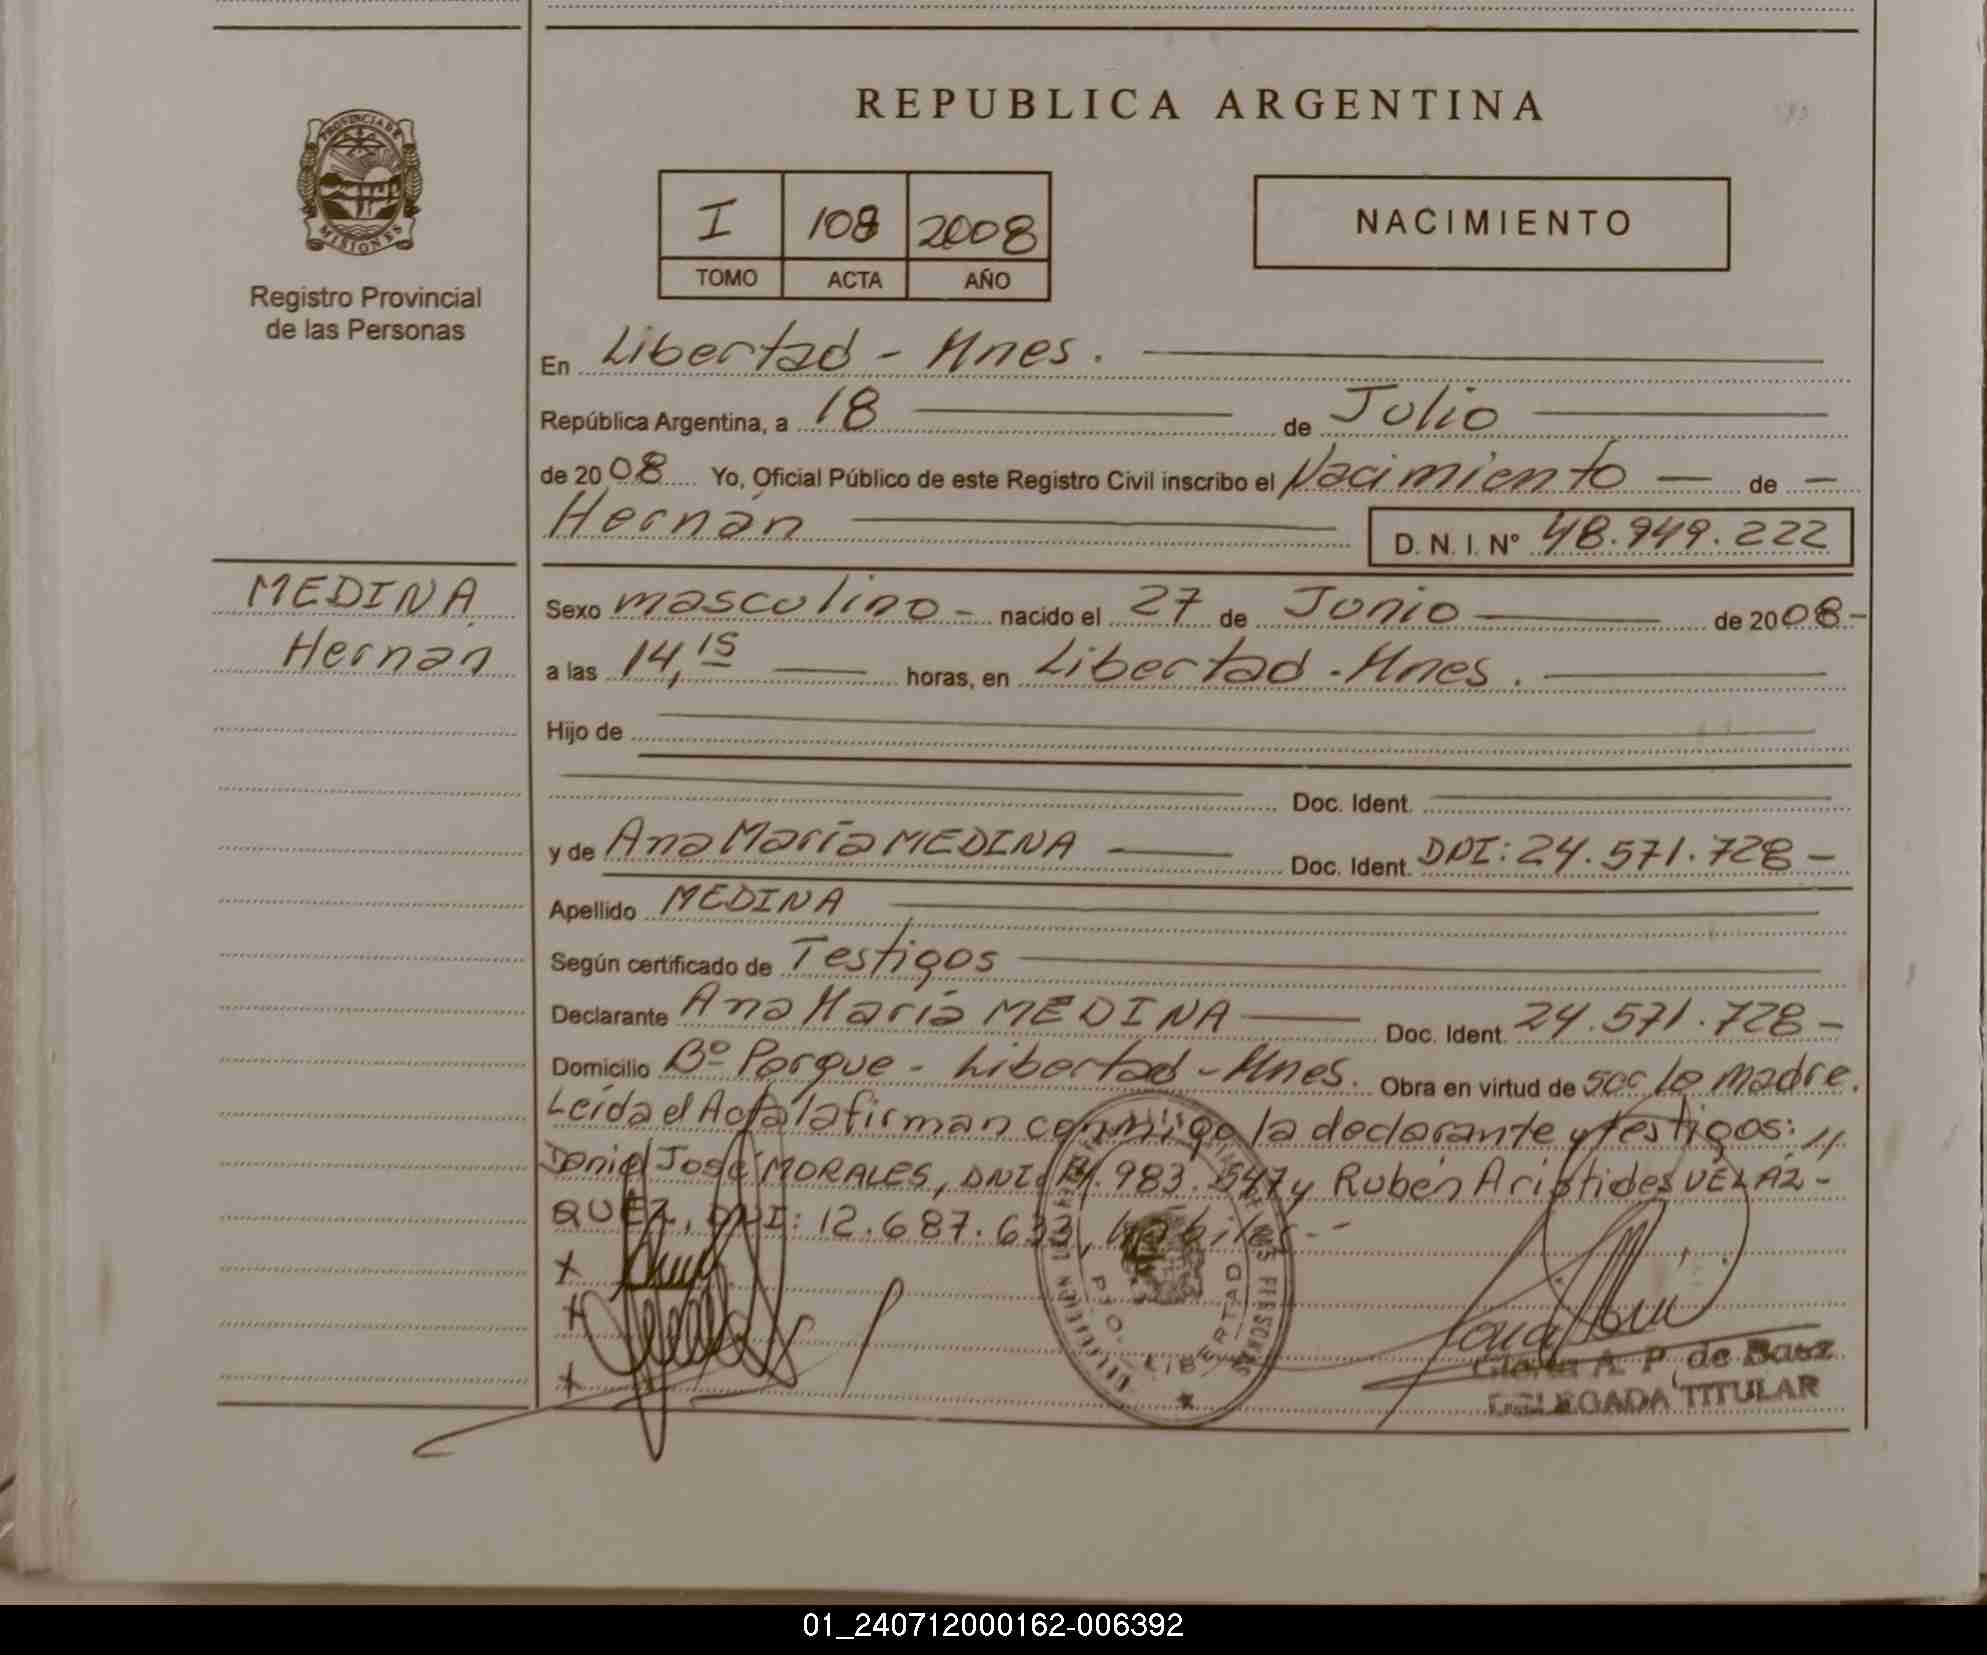 REPUBLICA ARGENTINA
PROVINCIA DE
MISIONES
Registro Provincial
de las Personas
I 108 2008
TOMO ACTA AÑO
NACIMIENTO
En Libertad - Mnes.
República Argentina, a 18 de Julio
de 2008 Yo, Oficial Público de este Registro Civil inscribo el Nacimiento de
Hernán D. N. I. N° 48.949.222
MEDINA
Hernán
Sexo masculino - nacido el 27 de Junio de 2008-
a las 14,15 horas, en Libertad - Mnes.
Hijo de
Doc. Ident.
y de Ana María MEDINA Doc. Ident. DNI: 24.571.728-
Apellido MEDINA
Según certificado de Testigos
Declarante Ana María MEDINA Doc. Ident. 24.571.728-
Domicilio Bº Parque - Libertad - Mnes. Obra en virtud de ser la madre.
Leída el Acta la firman conmigo la declarante y testigos:
Daniel José MORALES, DNI: .983.547 y Rubén Arístides VELÁZ-
QUEZ, DNI: 12.687.633, hábiles.-
x
x
x
PTO. LIBERTAD
Gloria A. P. de Baez
DELEGADA TITULAR
01_240712000162-006392